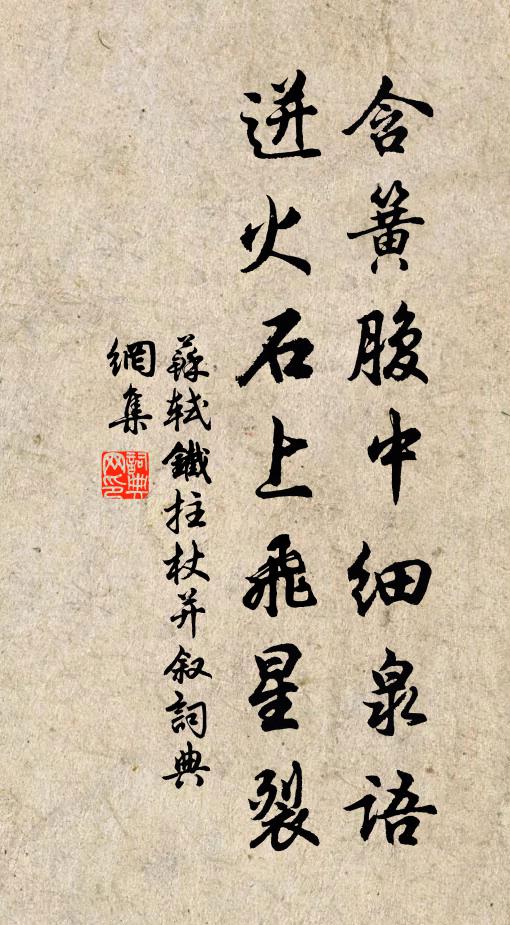 含簧腹中細泉語
迸火石上飛星裂
蘇軾鐵拄杖并叙詞典
網集
詞典網印